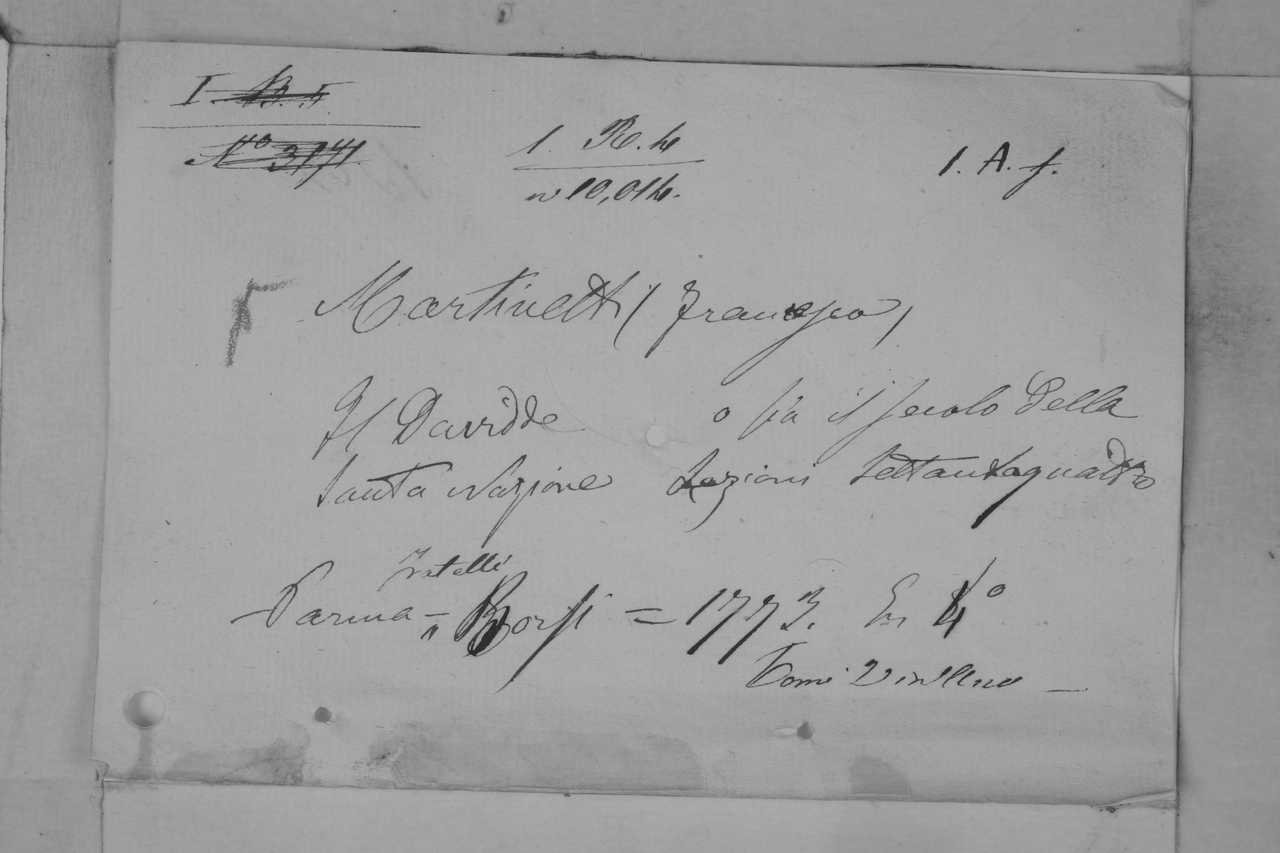 I. B. 5
N° 3171
1. R. 4
n 10,014.
1. A. f.
Martinetti (Francesco)
Il Davidde o sia il secolo della
santa Nazione Lezioni settantaquattro
Fratelli
Parma = Borsi = 1773. In 4°
Tomi 2 in Uno